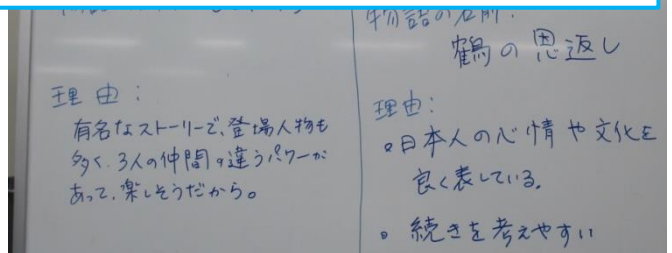 理由：
有名なストーリーで、登場人物も
多く、3人の仲間の違うパワーが
あって、楽しそうだから。
物語の名前：
鶴の恩返し
理由：
。日本人の心情や文化を
良く表している。
。続きを考えやすい